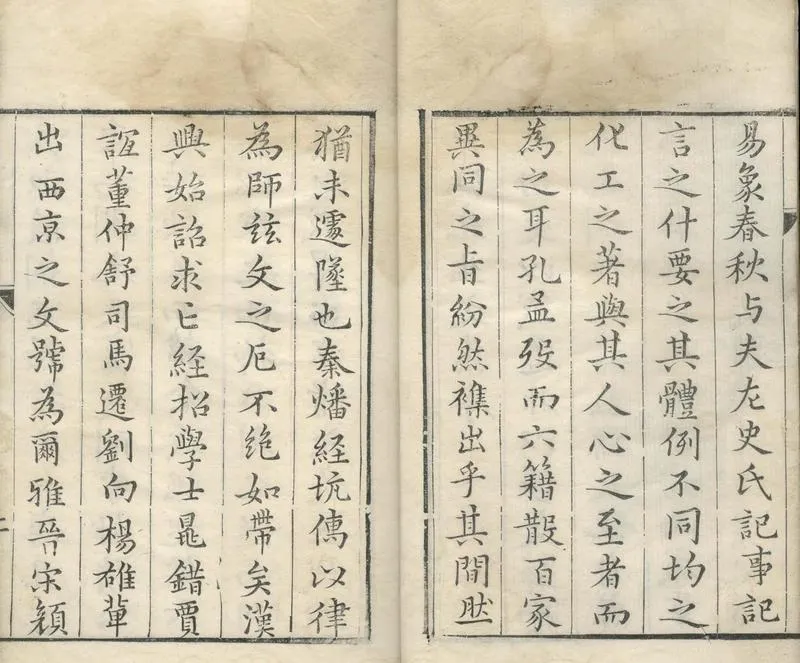 易象春秋与夫左史氏記事記
言之什要之其體例不同均之
化工之著與其人心之至者而
為之耳孔孟歿而六籍散百家
異同之旨紛然襍出乎其間然
猶未遽墜也秦燔經坑傳以律
為師茲文之厄不絶如帶矣漢
興始詔求亡經招學士鼂錯賈
誼董仲舒司馬遷劉向楊雄輩
出西亰之文號為爾雅晉宋頴